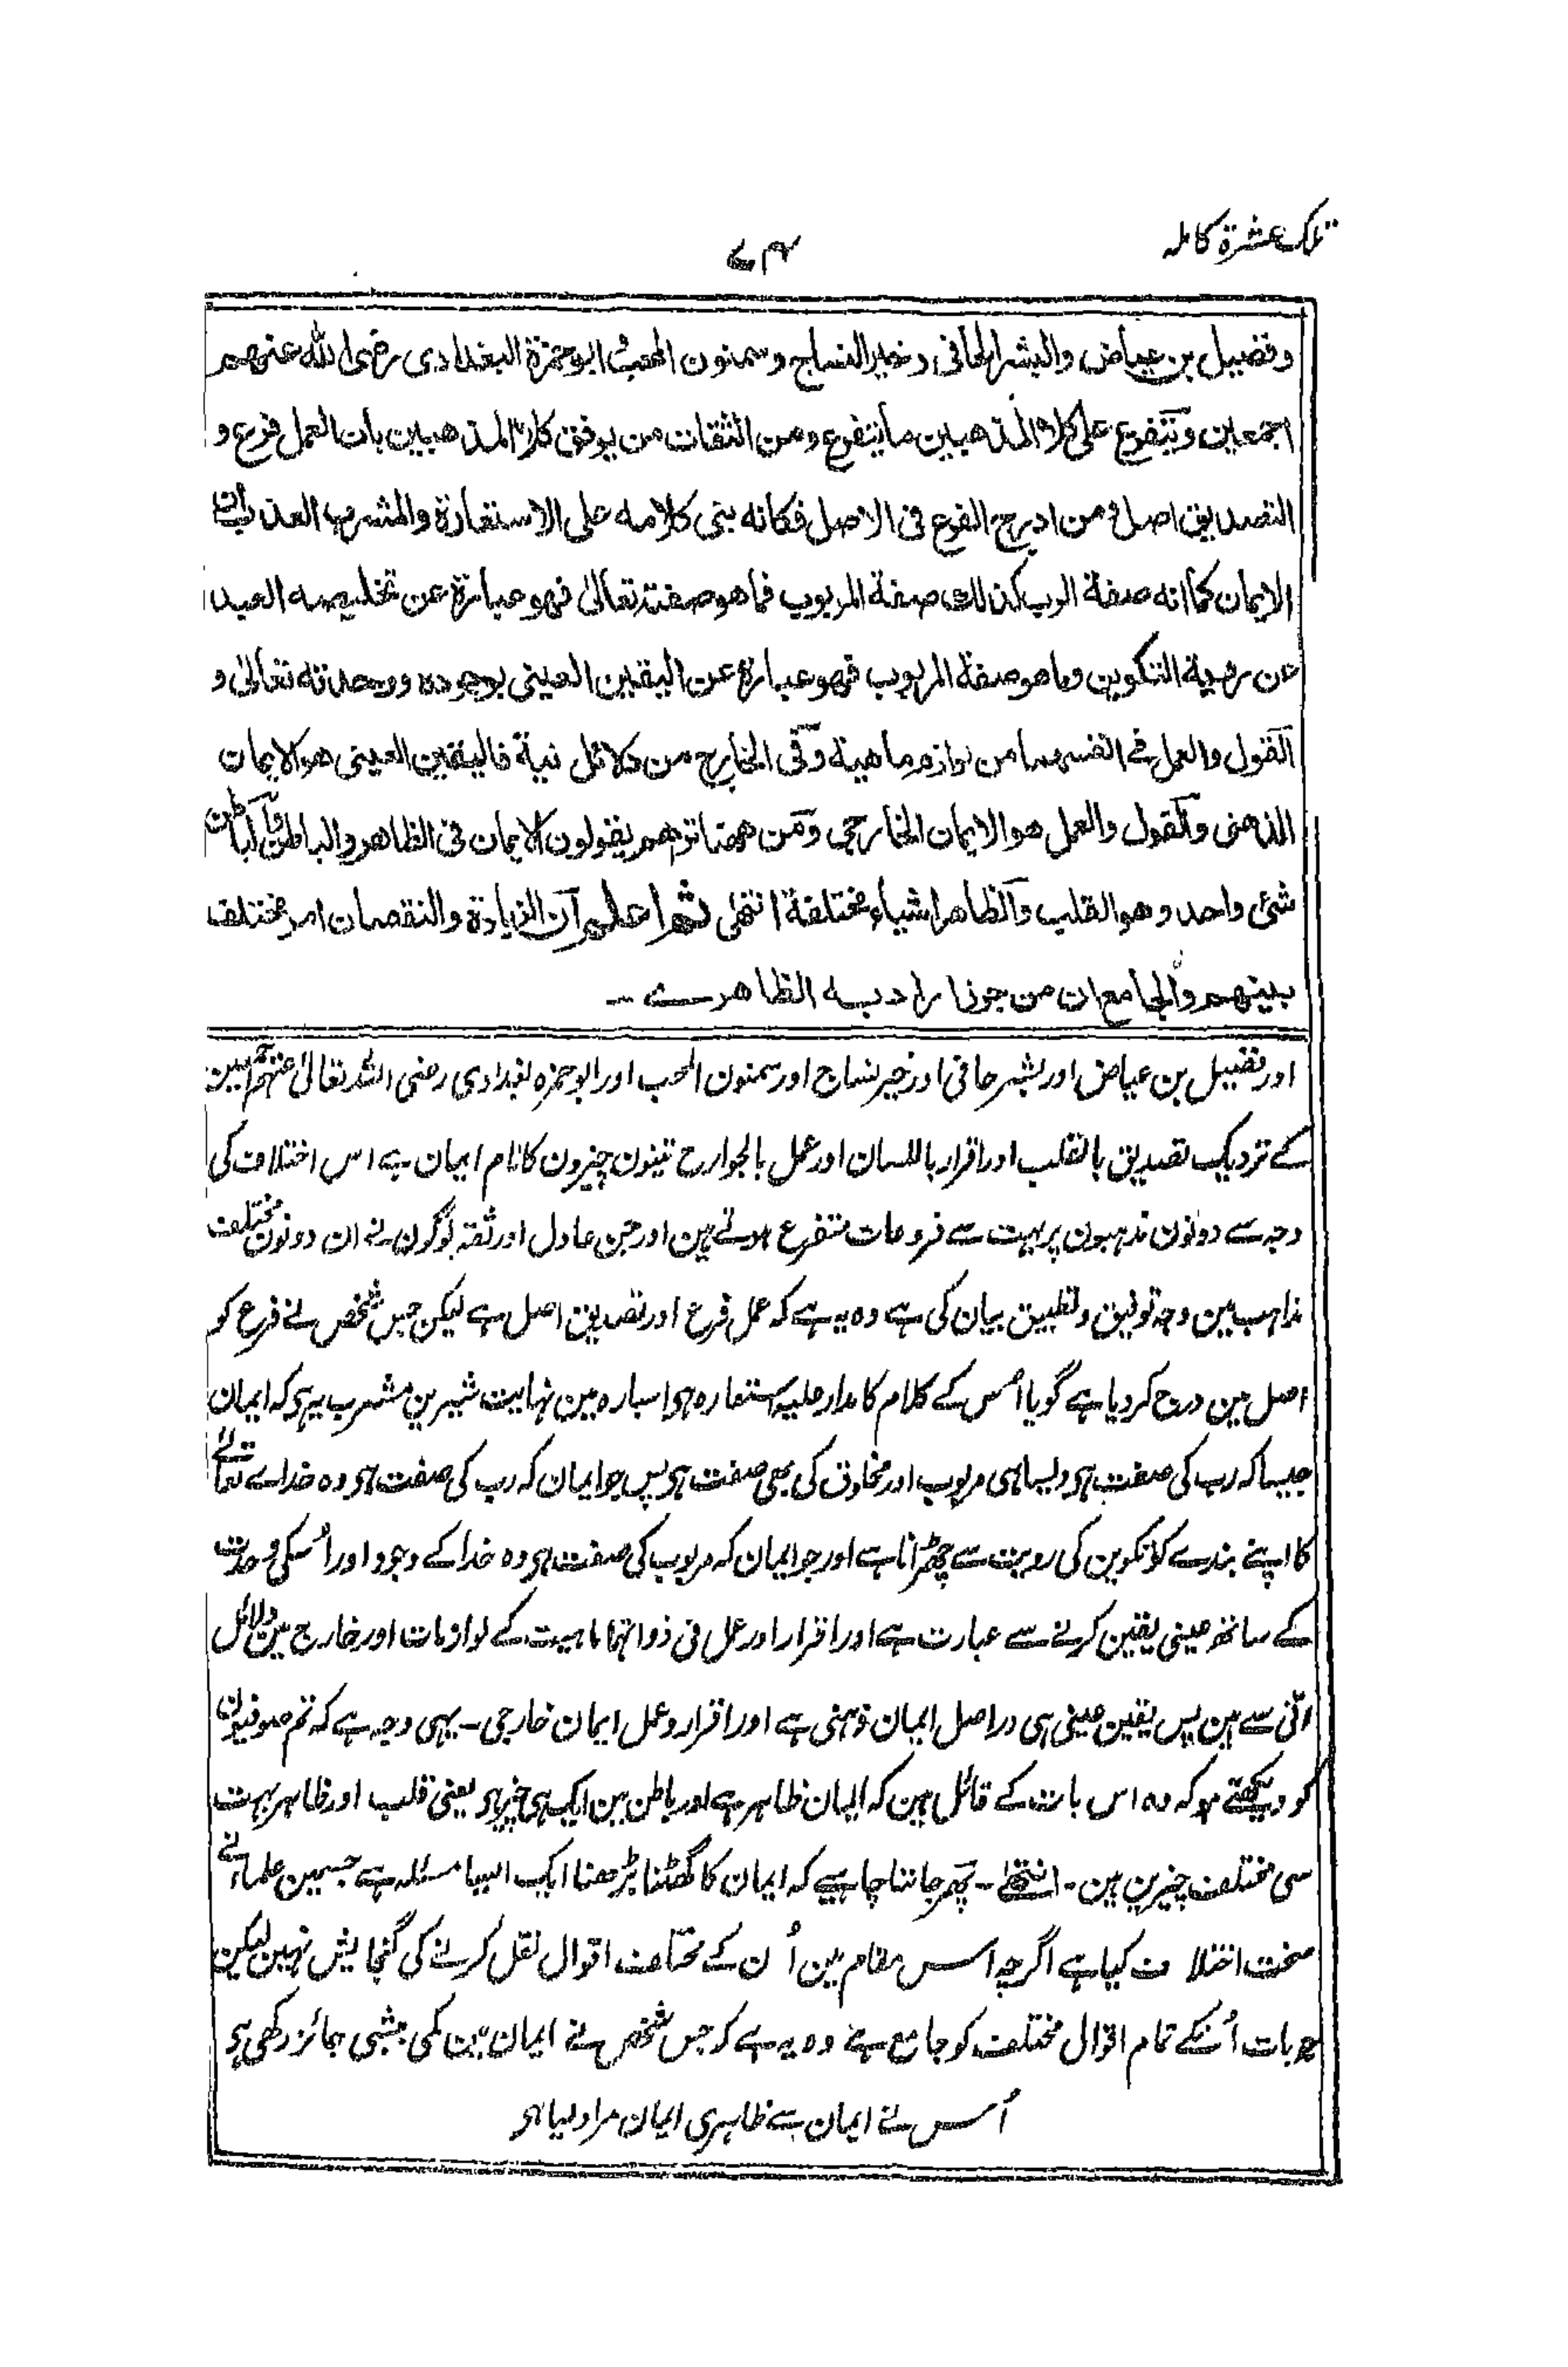 تلک عشرة کامله
۷۴
وفضیل بن عیاض والبشر الحافی وخیر النساج وسمنون المحب ابو حمزة البغدادی رضی الله عنهم
اجمعین ویتفرع علی کلا المذهبین ما یتفرع ومن الثقات من یوفق کلا المذهبین بان العمل فرع و
التصدیق اصل ومن ادرج الفرع فی الاصل فکانه بنی کلامه علی الاستعارة والمشرب العذب ان
الایمان کما انه صفة الرب کذلک صفة المربوب فما هو صفته تعالی فهو عبارة عن تخلیصه العبد
عن رویة التکوین وما هو صفة المربوب فهو عبارة عن الیقین العینی بوجوده ووحدته تعالی و
القول والعمل فی انفسهما من لوازم ماهیة وفی الخارج من دلائل نیة فالیقین العینی هو الایمان
الذهنی والقول والعمل هو الایمان الخارجی ومن ههنا تراهم یقولون الایمان فی الظاهر والباطن والباطن
شئ واحد وهو القلب والظاهر اشیاء مختلفة انتهی ثم اعلم ان الزیادة والنقصان امر مختلف
بینهم والجامع ان من جوز اراد به الظاهرے -
اور فضیل بن عیاض اور بشر حافی اور خیر نساج اور سمنون المحب اور ابو حمزہ بغدادی رضی اللہ تعالیٰ عنہم اجمعین
کے نزدیک تصدیق بالقلب اور اقرار باللسان اور عمل بالجوارح تینون چیزون کا نام ایمان ہے اس اختلاف کی
وجہ سے دونون مذہبون پر بہت سے فروعات متفرع ہوتے ہین اور جن عادل اور ثقہ لوگون نے ان دونون مختلف
مذاہب مین وجہ توفیق وتطبیق بیان کی ہے وہ یہ ہے کہ عمل فرع اور تصدیق اصل ہے لیکن جس شخص نے فرع کو
اصل مین درج کر دیا ہے گویا اُس کے کلام کا مدار علیہ استعارہ ہی اسبارہ مین نہایت شیرین مشرب یہ ہی کہ ایمان
جیسا کہ رب کی صفت ہی ویسا ہی مربوب اور مخلوق کی بھی صفت ہی پس جو ایمان کہ رب کی صفت ہی وہ خداے تعالے
کا اپنے بندے کو تکوین کی رویت سے چھڑانا ہے اور جو ایمان کہ مربوب کی صفت ہی وہ خدا کے وجود اور اُسکی وحدت
کے ساتھ عینی یقین کرنے سے عبارت ہے اور اقرار اور عمل فی ذواتہما ماہیت کے لوازمات اور خارج مین دلائل
انّی سے ہین پس یقین عینی ہی دراصل ایمان ذہنی ہے اور اقرار وعمل ایمان خارجی - یہی وجہ ہے کہ تم صوفیون
کو دیکھتے ہو کہ وہ اس بات کے قائل ہین کہ ایمان ظاہر ہے اور باطن مین ایک ہی چیز ہی یعنی قلب اور ظاہر بہت
سی مختلف چیزین ہین - انتھے - پھر جاننا چاہیے کہ ایمان کا گھٹنا بڑھنا ایک ایسا مسئلہ ہے جسمین علماء نے
سخت اختلاف کیا ہے اگرچہ اس مقام مین اُن کے مختلف اقوال نقل کرنے کی گنجایش نہین لیکن
جو بات اُنکے تمام اقوال مختلف کو جامع ہے وہ یہ ہے کہ جس شخص نے ایمان مین کمی بیشی جائز رکھی ہی
اُس نے ایمان سے ظاہری ایمان مراد لیا ہی